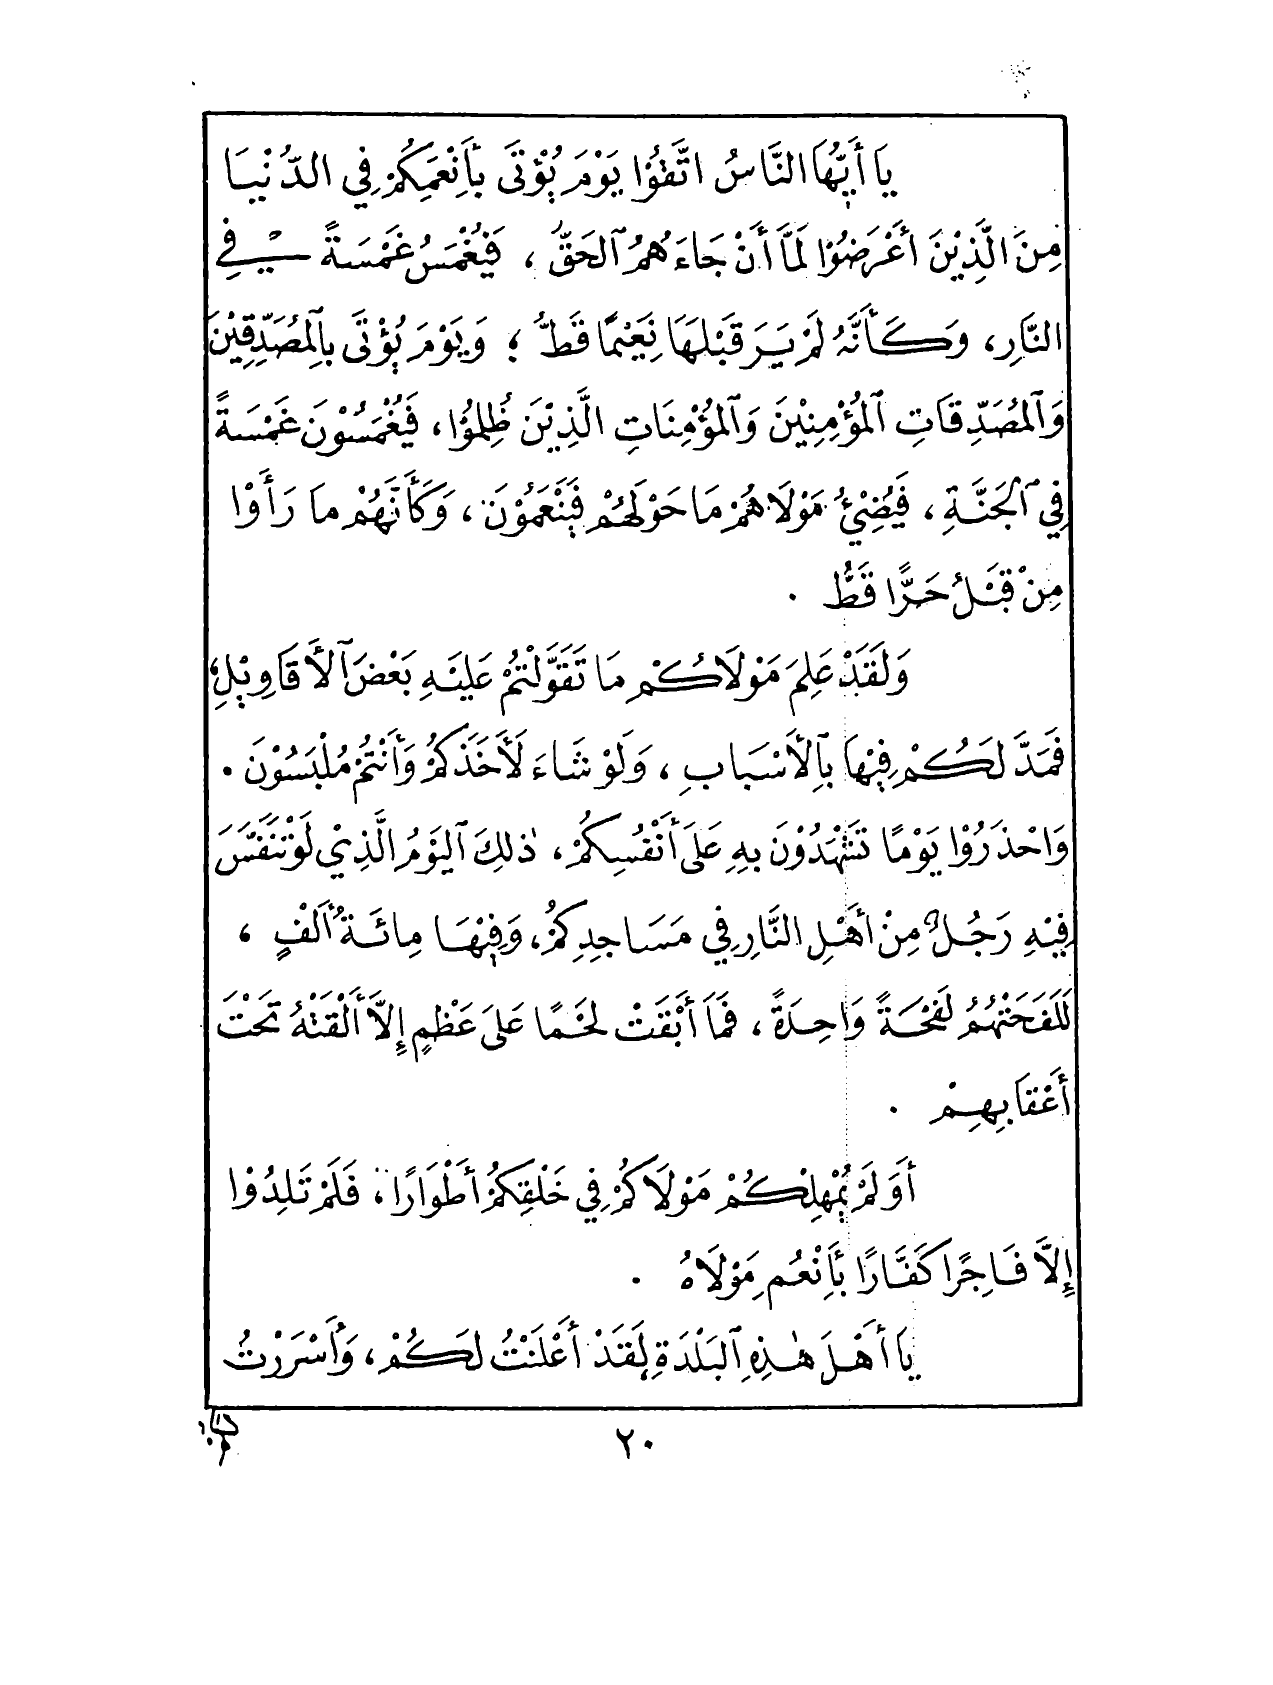 يَا أَيُّهَا النَّاسُ اتَّقُوْا يَوْمَ يُؤْتَى بِأَنْعَمِكُمْ فِي الدُّنْيَا
مِنَ الَّذِيْنَ أَعْرَضُوْا لَمَّا أَنْ جَاءَهُمُ ٱلحَقُّ ، فَيُغْمَسُ غَمْسَةً فِي
النَّارِ، وَكَأَنَّهُ لَمْ يَرَ قَبْلَهَا نَعِيْمًا قَطُّ ؛ وَيَوْمَ يُؤْتَى بِٱلمُصَدِّقِيْنَ
وَٱلمُصَدِّقَاتِ ٱلمُؤْمِنِيْنَ وَٱلمُؤْمِنَاتِ الَّذِيْنَ ظُلِمُوْا، فَيُغْمَسُوْنَ غَمْسَةً
فِي ٱلجَنَّةِ ، فَيُضِيْءُ مَوْلَاهُمْ مَا حَوْلَهُمْ فَيَنْعَمُوْنَ ، وَكَأَنَّهُمْ مَا رَأَوْا
مِنْ قَبْلُ حَرًّا قَطُّ .
وَلَقَدْ عَلِمَ مَوْلَاكُمْ مَا تَقَوَّلْتُمْ عَلَيْهِ بَعْضَ ٱلأَقَاوِيْلِ؛
فَمَدَّ لَكُمْ فِيْهَا بِٱلأَسْبَابِ ، وَلَوْ شَاءَ لَأَخَذَكُمْ وَأَنْتُمْ مُلْبَسُوْنَ .
وَاحْذَرُوْا يَوْمًا تَشْهَدُوْنَ بِهِ عَلَى أَنْفُسِكُمْ، ذٰلِكَ ٱليَوْمُ الَّذِيْ لَوْ تَنَفَّسَ
فِيْهِ رَجُلٌ مِنْ أَهْلِ النَّارِ فِي مَسَاجِدِكُمْ، وَفِيْهَا مِائَةُ أَلْفٍ ،
لَلَفَحَتْهُمُ لَفْحَةً وَاحِدَةً ، فَمَا أَبْقَتْ لَحْمًا عَلَى عَظْمٍ إِلَّا أَلْقَتْهُ تَحْتَ
أَعْقَابِهِمْ .
أَوَلَمْ يُمْهِلْكُمْ مَوْلَاكُمْ فِي خَلْقِكُمْ أَطْوَارًا، فَلَمْ تَلِدُوْا
إِلَّا فَاجِرًا كَفَّارًا بِأَنْعُمِ مَوْلَاهُ .
يَا أَهْلَ هٰذِهِ ٱلبَلْدَةِ لَقَدْ أَعْلَنْتُ لَكُمْ، وَأَسْرَرْتُ
٢٠